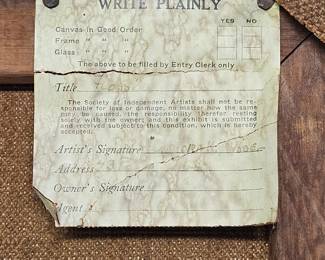 WRITE PLAINLY
YES NO
Canvas in Good Order
Frame " " "
Glass " " "
The above to be filled by Entry Clerk only
Title
The Society of Independent Artists shall not be re-
sponsible for loss or damage, no matter how the same
may be caused, the responsibility therefor resting
solely with the owner; and this exhibit is submitted
and received subject to this condition, which is hereby
accepted.
Artist's Signature
Address
Owner's Signature
Agent